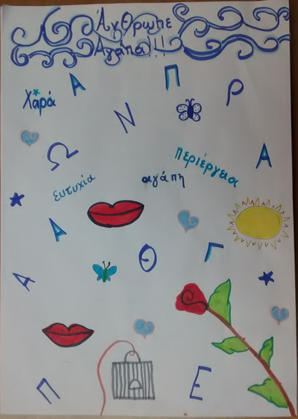 Άνθρωπε
Αγάπα!!
Α Π
Χαρά Ν Ρ
Ω Περιέργεια Α
Ευτυχία αγάπη
Α Θ Γ
Α
Π Ε